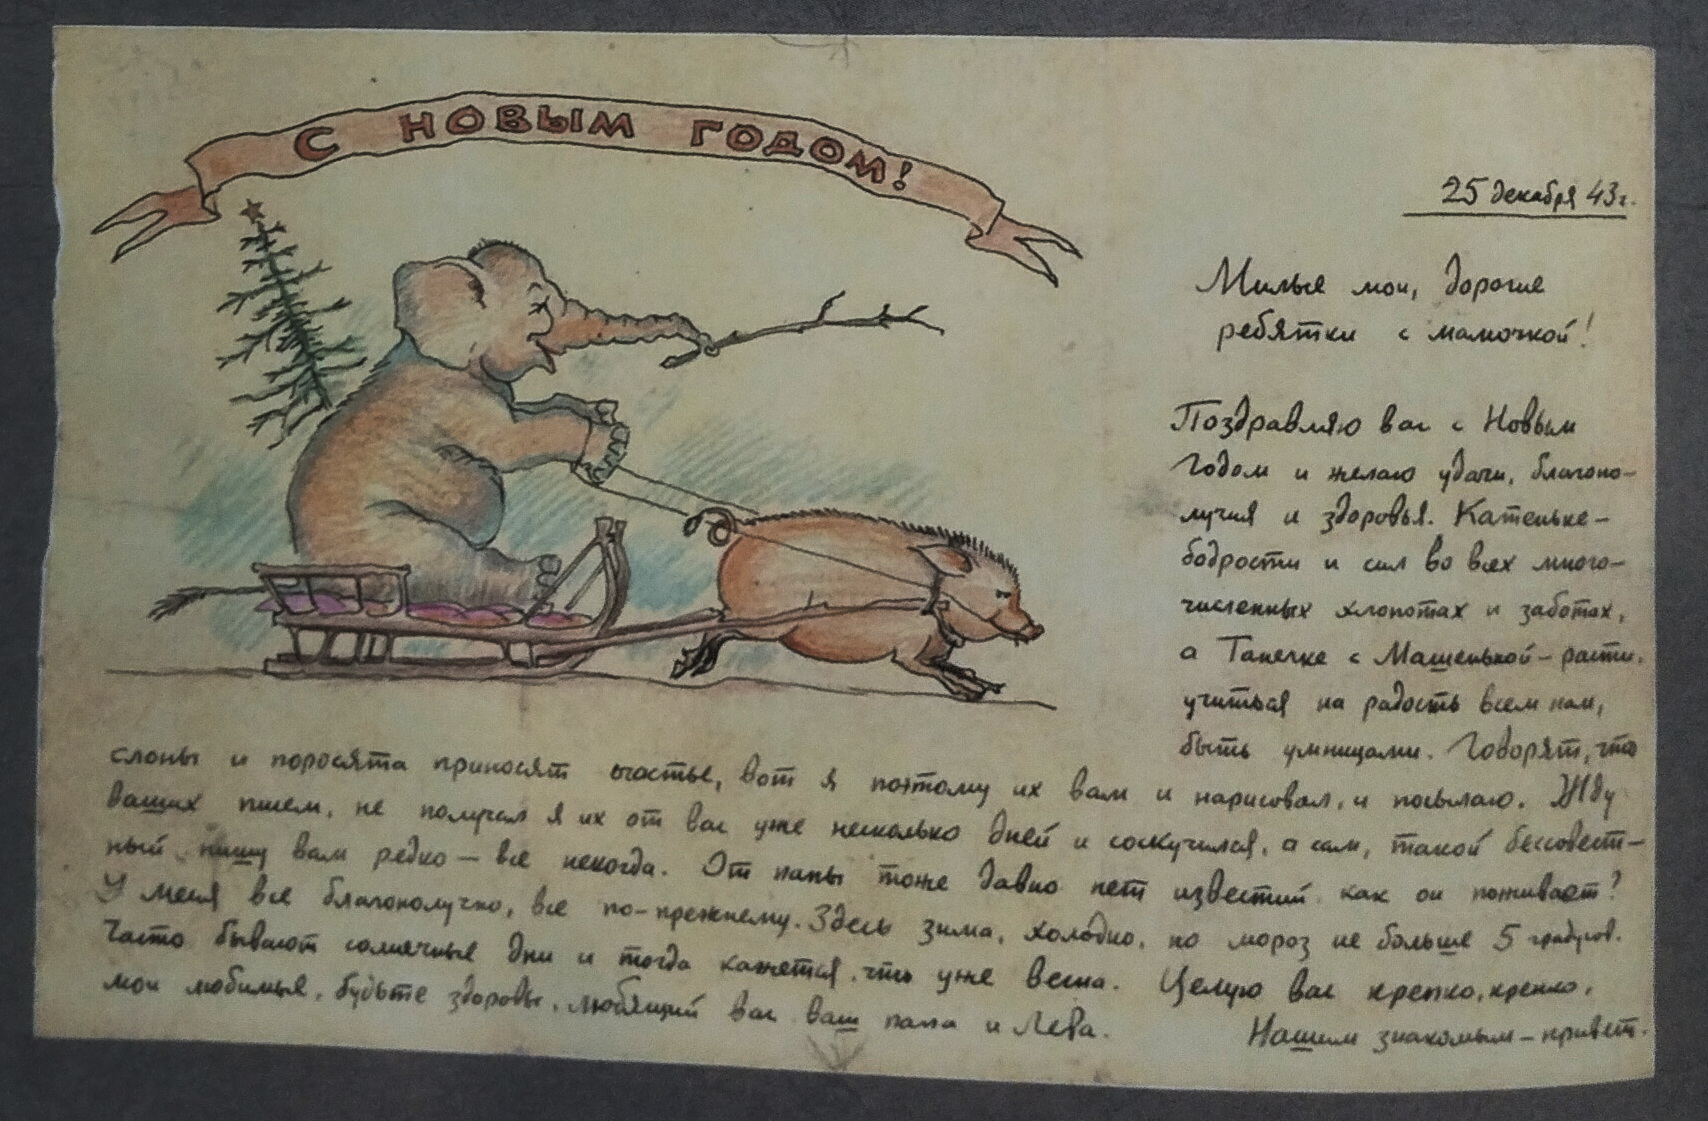 С НОВЫМ ГОДОМ!
25 декабря 43г.
Милые мои, дорогие
ребятки с мамочкой!
Поздравляю вас с Новым
Годом и желаю удачи, благопо-
лучия и здоровья. Катеньке-
бодрости и сил во всех много-
численных хлопотах и заботах,
а Танечке с Машенькой - расти,
учиться на радость всем нам,
быть умницами. Говорят, что
слоны и поросята приносят счастье, вот я поэтому их вам и нарисовал, и посылаю. Жду
ваших писем, не получал я их от вас уже несколько дней и соскучился, а сам, такой бессовест-
ный пишу вам редко - все некогда. От папы тоже давно нет известий как он поживает?
У меня все благополучно, все по-прежнему. Здесь зима, холодно, но мороз не больше 5 градусов.
Часто бывают солнечные дни и тогда кажется, что уже весна. Целую вас крепко, крепко,
мои любимые, будьте здоровы, любящий вас ваш папа и Лева.
Нашим знакомым - привет.